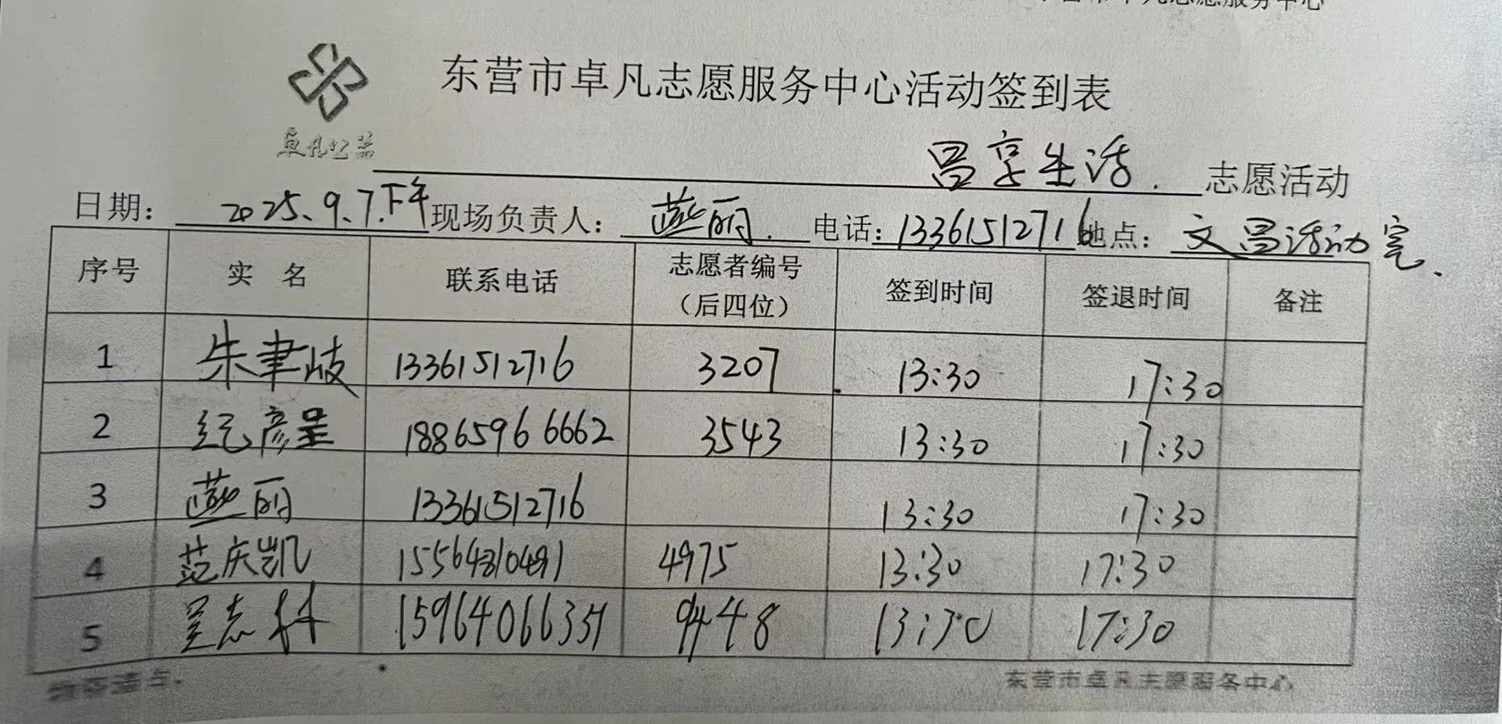 东营市卓凡志愿服务中心
东营市卓凡志愿服务中心活动签到表
卓凡公益
昌享生活. 志愿活动
日期: 2025.9.7.下午 现场负责人: 燕丽. 电话: 13361512716 地点: 文昌活动室.
序号 实名 联系电话 志愿者编号(后四位) 签到时间 签退时间 备注
1 朱聿岐 13361512716 3207 13:30 17:30
2 纪彦呈 18865966662 3543 13:30 17:30
3 燕丽 13361512716 13:30 17:30
4 范庆凯 15564810491 4975 13:30 17:30
5 志林 15964066351 9448 13:30 17:30
东营市卓凡志愿服务中心